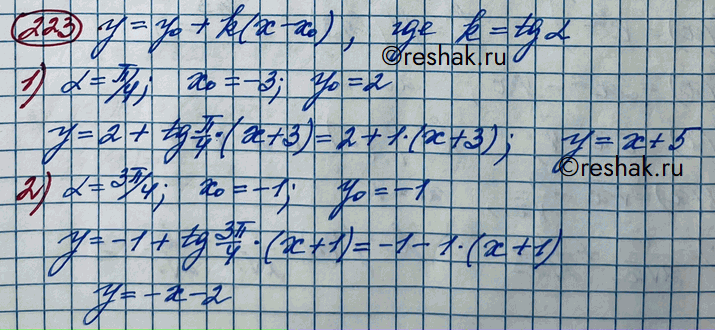 223 y = y₀ + k(x - x₀), где k = tg α
©reshak.ru
1) α = π/4; x₀ = -3; y₀ = 2
y = 2 + tg π/4 · (x + 3) = 2 + 1 · (x + 3); y = x + 5
©reshak.ru
2) α = 3π/4; x₀ = -1; y₀ = -1
y = -1 + tg 3π/4 · (x + 1) = -1 - 1 · (x + 1)
y = -x - 2